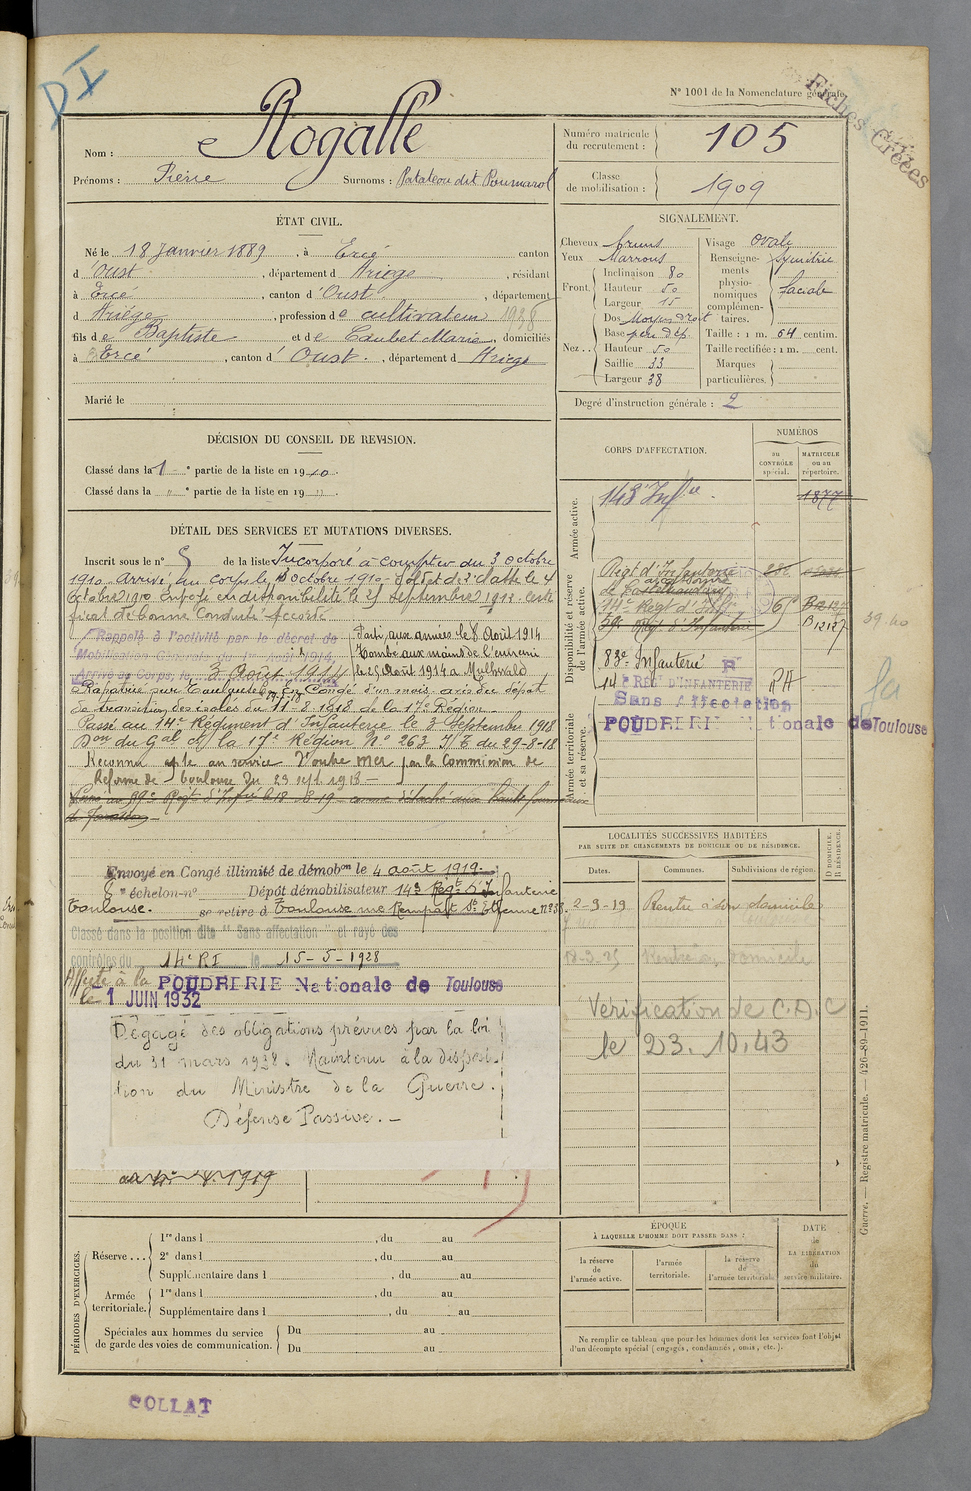 D I
N° 1001 de la Nomenclature générale.
Fiches Créées
Nom : Rogalle
Prénoms : Pierre Surnoms : Patateou dit Poumarol
Numéro matricule du recrutement : 105
Classe de mobilisation : 1909
ÉTAT CIVIL.
Né le 18 Janvier 1889, à Ercé canton
d'Oust, département d Ariège, résidant
à Ercé, canton d'Oust, département
d Ariège, profession de cultivateur 1938
fils de Baptiste et de Caubet Marie, domiciliés
à Ercé, canton d'Oust, département d Ariège
Marié le
SIGNALEMENT.
Cheveux bruns
Yeux Marrons
Front. Inclinaison 80
Hauteur 50
Largeur 15
Nez .. Dos
Base
Hauteur 50
Saillie 33
Largeur 38
Visage ovale
Renseignements physionomiques complémentaires. facial
Taille : 1 m. 64 centim.
Taille rectifiée : 1 m. cent.
Marques particulières.
Degré d'instruction générale : 2
DÉCISION DU CONSEIL DE REVISION.
Classé dans la 1e partie de la liste en 1910.
Classé dans la " e partie de la liste en 19 " .
DÉTAIL DES SERVICES ET MUTATIONS DIVERSES.
Inscrit sous le n° 5 de la liste Incorporé à compter du 3 octobre
1910. Arrivé au corps le octobre 1910. Soldat de 2e classe le 4
octobre 1910. Envoyé en disponibilité le 25 septembre 1912. Certi
ficat de bonne Conduite Accordé
Rappelé à l'activité par le décret de
Mobilisation Générale du 1er Août 1914.
Arrivé au Corps le 3 Août 1914
Parti aux armées le 8 Août 1914
Tombé aux mains de l'ennemi
le Août 1914 a Mulhwald
Rapatrié sur Toulouse En Congé d'un mois
de transition 11-8 1918 de la 17e Région
Passé au 14e Régiment d'Infanterie le 3 Septembre 1918
Don du Gal Ct la 17e Région N° 263 du 29-8-18
Reconnu apte au service d'outre mer par la Commission de
Réforme de Toulouse du 23 sept 1918 —
Envoyé en Congé illimité de démobon le 4 août 1919
8e échelon-n° Dépôt démobilisateur 143 Regt d'Infanterie
Toulouse. se retire à Toulouse rue Rempart St Etienne n° 38.
Classé dans la position dite "Sans affectation" et rayé des
contrôles du 14e RI le 15-5-1928
Affecté à la POUDRERIE Nationale de Toulouse
le 1 JUIN 1932
Dégagé des obligations prévues par la loi
du 31 mars 1928. Maintenu à la disposi-
tion du Ministre de la Guerre.
Défense Passive. —
1919
CORPS D'AFFECTATION.
NUMÉROS
AU CONTRÔLE spécial.
MATRICULE ou au répertoire.
Armée active.
143e Inf ie. 1877
Disponibilité et réserve de l'armée active.
Régt d'Infanterie
de Carcassonne
14e Regt d'Infie
59e Regt d'Infanterie
B 12127
83e Infanterie
14e RÉGt D'INFANTERIE
Sans Affectation
Armée territoriale et sa réserve.
POUDRERIE Nationale de Toulouse
39-40
LOCALITÉS SUCCESSIVES HABITÉES
PAR SUITE DE CHANGEMENTS DE DOMICILE OU DE RÉSIDENCE.
Dates. Communes. Subdivisions de région.
D DOMICILE. R RÉSIDENCE.
2-9-19 Rentre à son domicile
Rentre au domicile
Vérification de C.D.C
le 23.10.43
PÉRIODES D'EXERCICES.
Réserve ... 1re dans l , du au
2e dans l , du au
Supplémentaire dans l , du au
Armée territoriale. 1re dans l , du au
Supplémentaire dans l , du au
Spéciales aux hommes du service de garde des voies de communication. Du au
Du au
ÉPOQUE
À LAQUELLE L'HOMME DOIT PASSER DANS :
la réserve de l'armée active.
l'armée territoriale.
la réserve de l'armée territoriale
DATE de LA LIBÉRATION du service militaire.
Ne remplir ce tableau que pour les hommes dont les services font l'objet
d'un décompte spécial (engagés, condamnés, omis, etc.).
Guerre. — Registre matricule. — 426-89-1911.
COLLAT